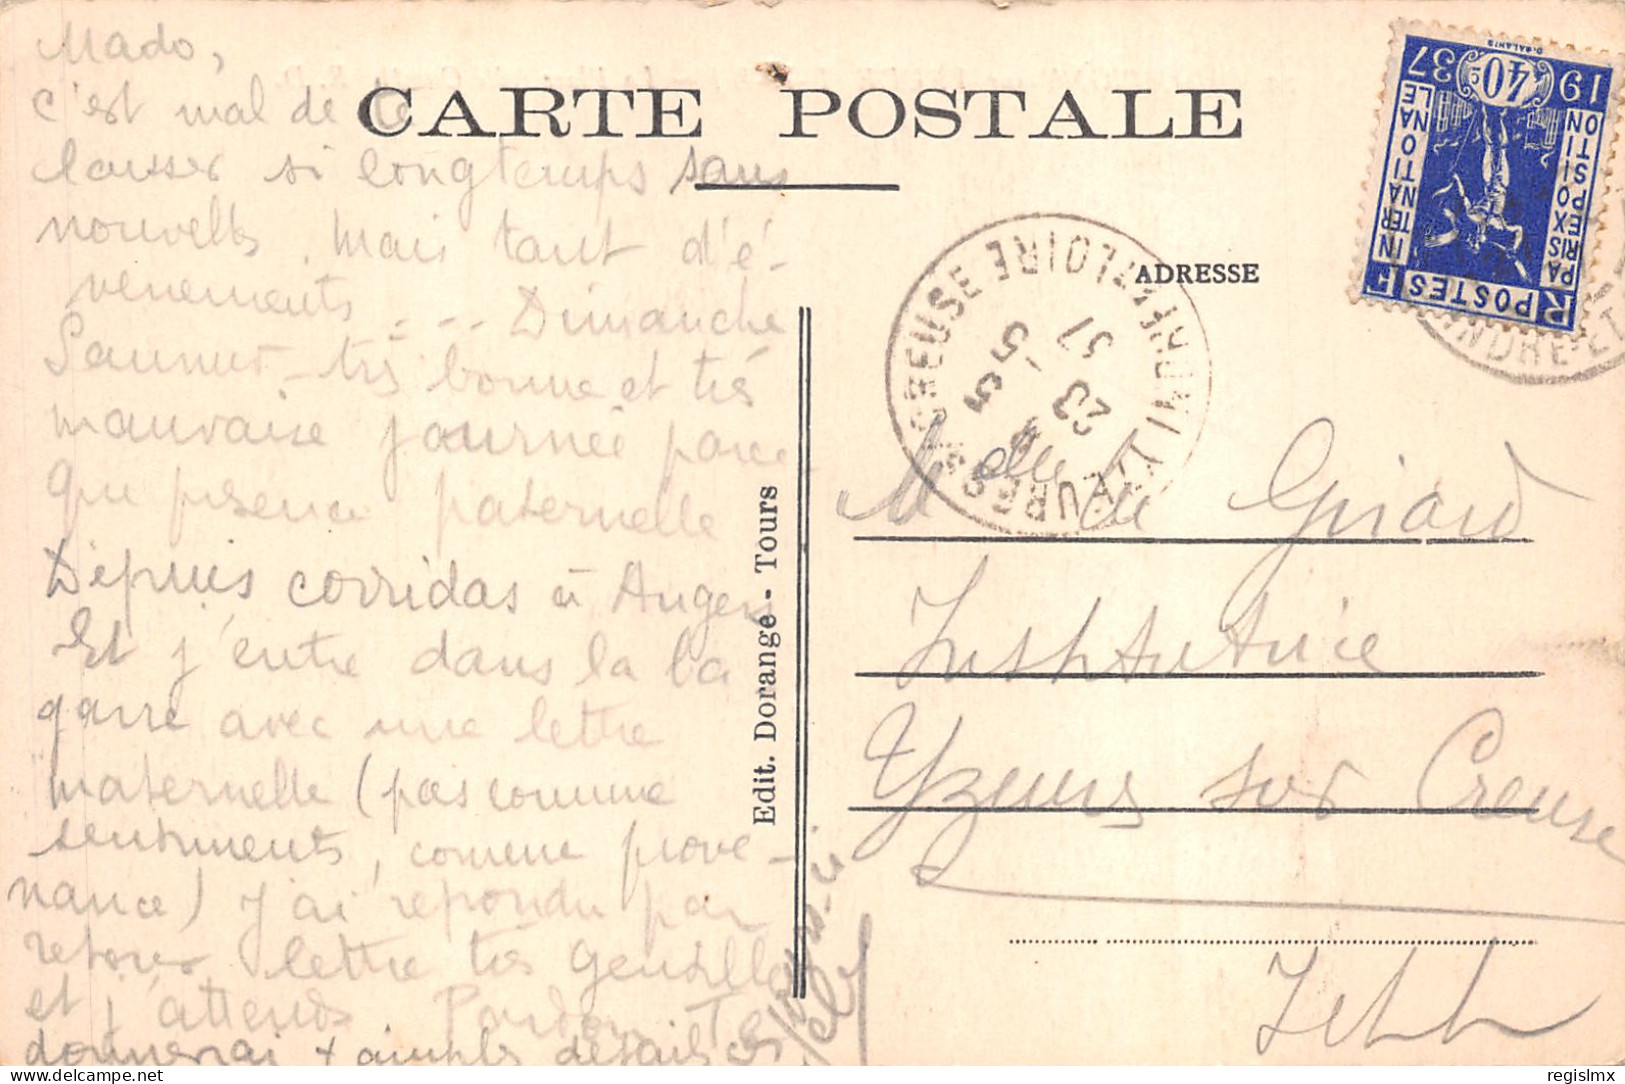 Mado,
c'est mal de te
laisser si longtemps sans
nouvelles. Mais tant d'é-
vènements . - - Dimanche
Saumur - très bonne et très
mauvaise journée parce
que présence paternelle
Depuis corridas à Angers
Et j'entre dans la ba
garre avec une lettre
maternelle (pas comme
sentiments, comme prove-
nance) J'ai répondu par
retour lettre très gentille
et j'attends. Pardon. Te
donnerai + amples détails
CARTE POSTALE
ADRESSE
Edit. Dorange - Tours
Melle de Girard
Institutrice
Yzeures sur Creuse
I et L
YZEURES S. CREUSE INDRE-ET-LOIRE
23 -5
37
INDRE-ET
RF POSTES
PARIS EXPOSITION INTERNATIONALE
1937
40c
© regislmx